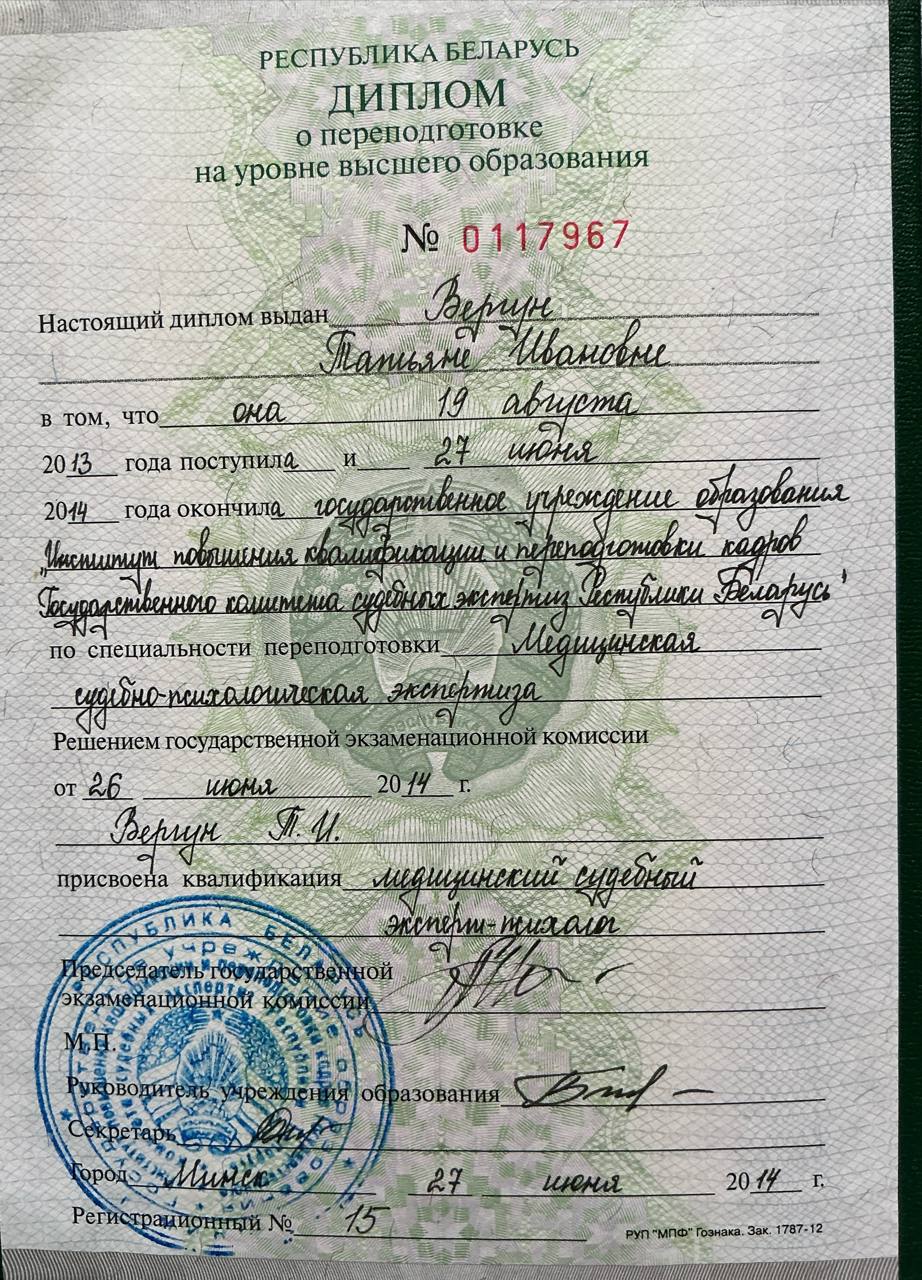 РЕСПУБЛИКА БЕЛАРУСЬ
ДИПЛОМ
о переподготовке
на уровне высшего образования
№ 0117967
Настоящий диплом выдан Вергун
Татьяне Ивановне
в том, что она 19 августа
2013 года поступила и 27 июня
2014 года окончила государственное учреждение образования
"Институт повышения квалификации и переподготовки кадров
Государственного комитета судебных экспертиз Республики Беларусь"
по специальности переподготовки Медицинская
судебно-психологическая экспертиза
Решением государственной экзаменационной комиссии
от 26 июня 2014 г.
Вергун Т. И.
присвоена квалификация медицинский судебный
эксперт-психолог
РЕСПУБЛИКА БЕЛАРУСЬ
Председатель государственной
экзаменационной комиссии
М.П.
Руководитель учреждения образования
Секретарь
Город Минск 27 июня 2014 г.
Регистрационный № 15
РУП "МПФ" Гознака. Зак. 1787-12